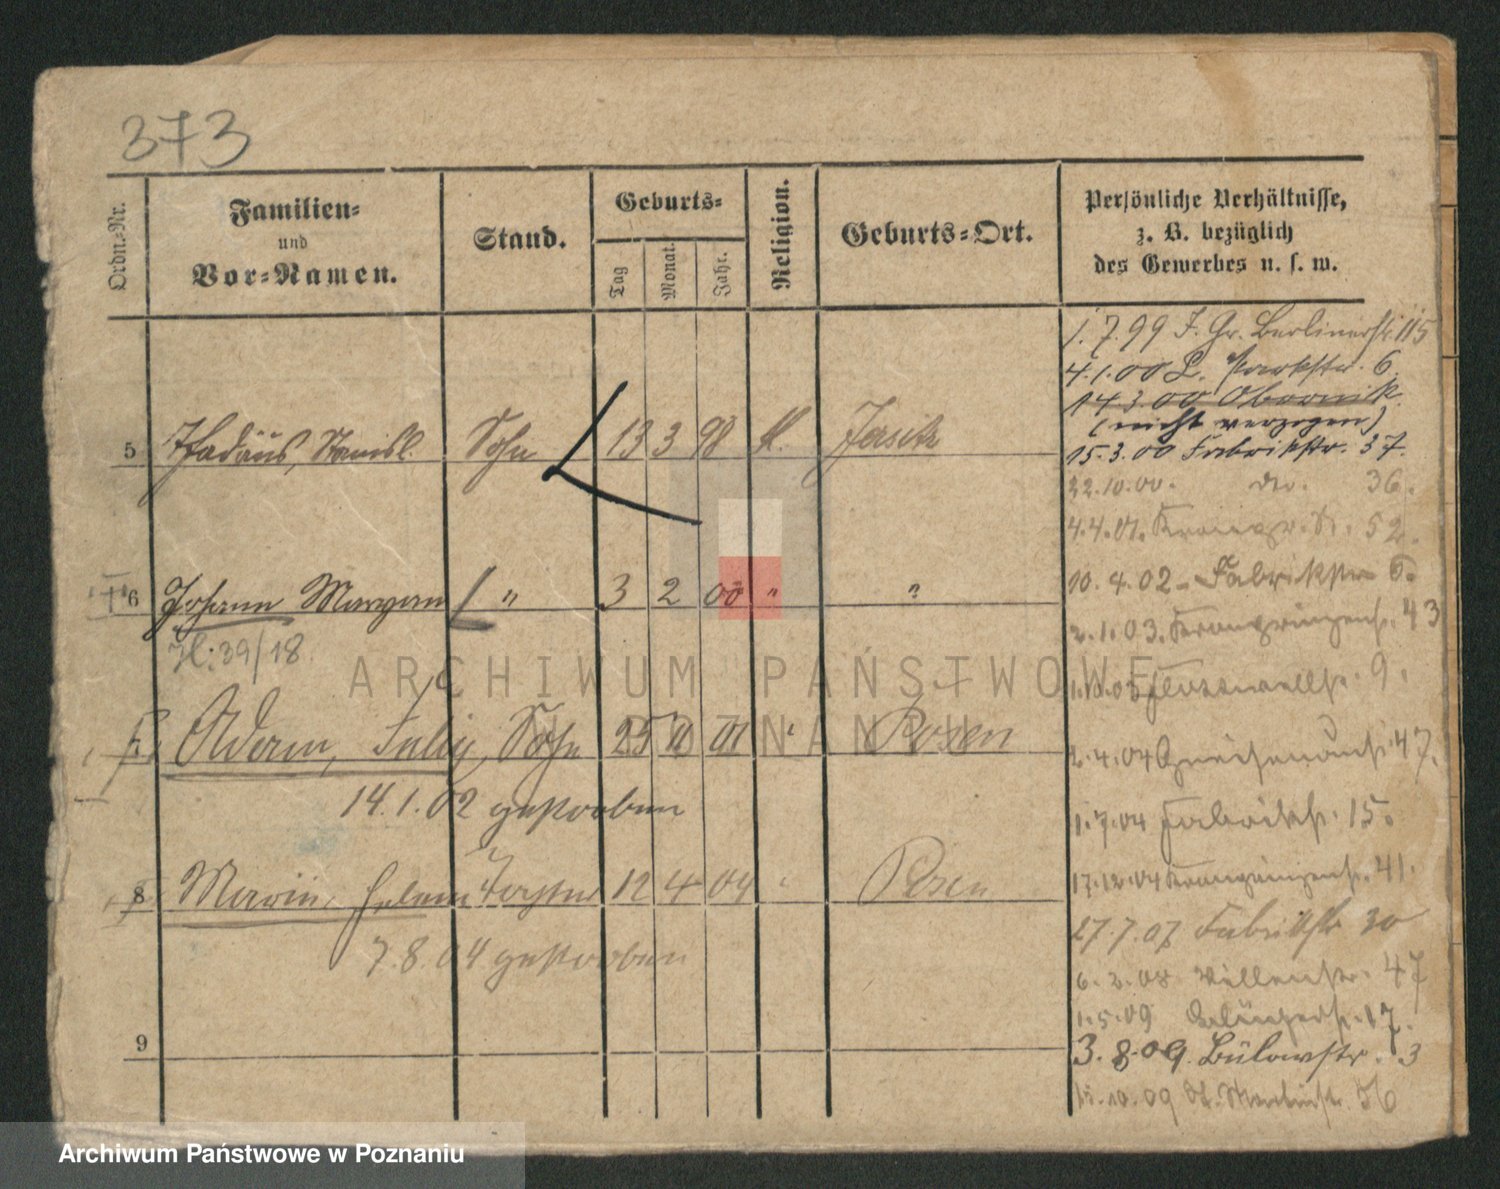 373
Ordn.-Nr.
Familien-
und
Vor-Namen.
Stand.
Geburts-
Tag
Monat.
Jahr.
Religion.
Geburts-Ort.
Persönliche Verhältnisse,
z. B. bezüglich
des Gewerbes u. s. w.
5 Thadäus, Stanisl. Sohn 13 3 98 k. Jersitz
6 Johann Maryan " 3 2 00 " "
39/18
7 Adam, Sohn 25 11 01 " Posen
14.1.02 gestorben
8 Maria, Helena Tochter 12 4 04 " Posen
7.8.04 gestorben
9
1.7.99 J. Gr. Berlinerstr. 115
4.1.00 L. Parkstr. 6.
14 3.00 Obornik.
(nicht verzogen)
15.3.00 Fabrikstr. 37.
22.10.00. do. 36.
4.4.01. 52.
10.4.02 Fabrikstr. 6.
2.1.03. 43
9.
2.4.04 Gneisenaustr. 47.
1.7.04 Fabrikstr. 15.
17.12.04 41.
27.7.07 Fabrikstr 30
6.2.08 Villenstr. 47
1.5.09 17.
3.8.09. Bülowstr. 3
15.10.09 St. Martinstr. 56
ARCHIWUM PAŃSTWOWE
W POZNANIU
Archiwum Państwowe w Poznaniu